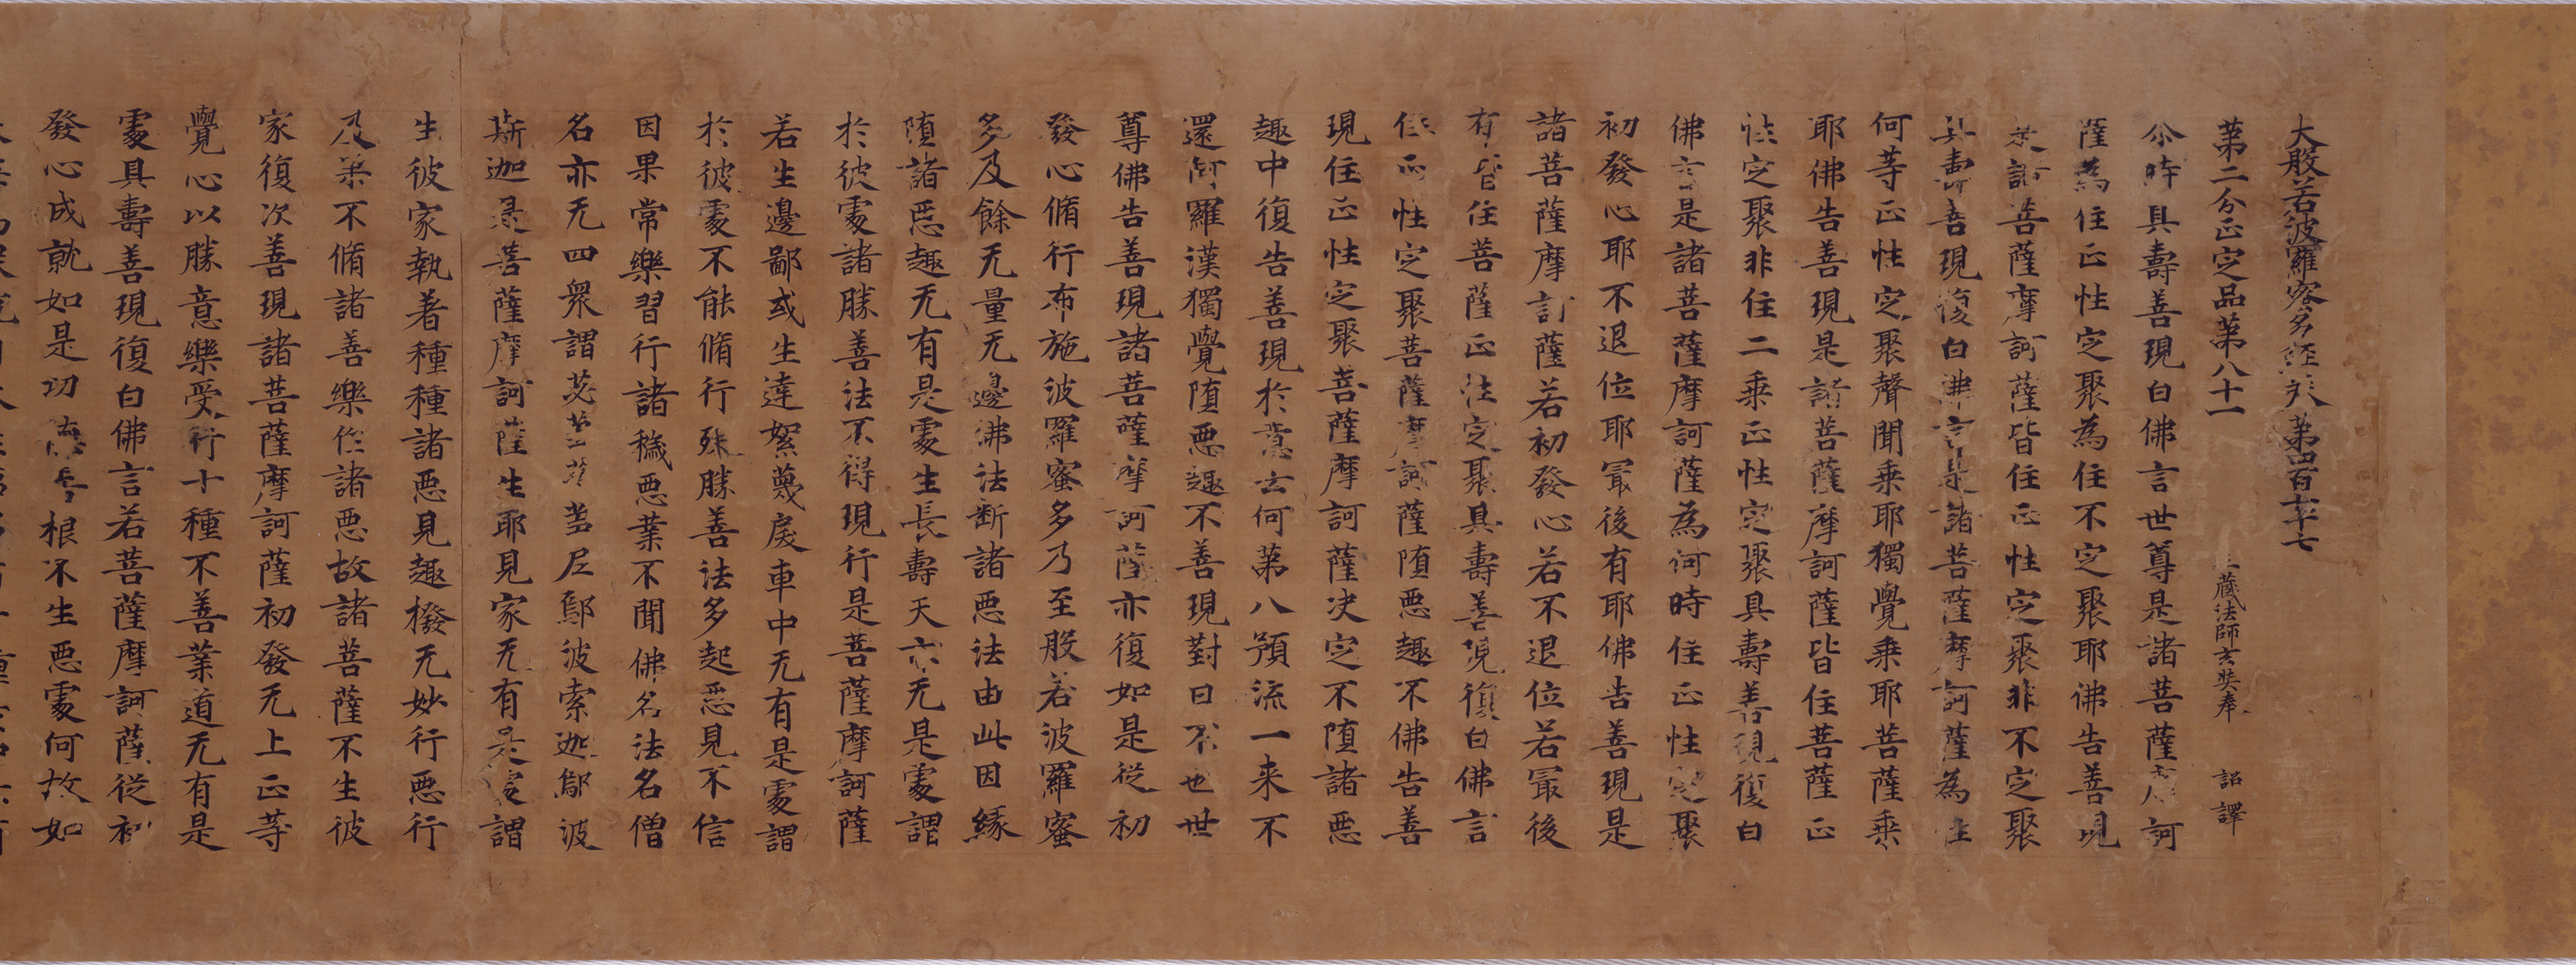 大般若波羅蜜多經卷第四百七十七
第二分正定品第八十一
三藏法師玄奘奉 詔譯
尒時具壽善現白佛言世尊是諸菩薩摩訶
薩為住正性定聚為住不定聚耶佛告善現
是諸菩薩摩訶薩皆住正性定聚非不定聚
具壽善現復白佛言是諸菩薩摩訶薩為住
何等正性定聚聲聞乘耶獨覺乘耶菩薩乘
耶佛告善現是諸菩薩摩訶薩皆住菩薩正
性定聚非住二乘正性定聚具壽善現復白
佛言是諸菩薩摩訶薩為何時住正性定聚
初發心耶不退位耶冣後有耶佛告善現是
諸菩薩摩訶薩若初發心若不退位若冣後
有皆住菩薩正性定聚具壽善現復白佛言
住正性定聚菩薩摩訶薩堕惡趣不佛告善
現住正性定聚菩薩摩訶薩决定不堕諸惡
趣中復告善現於意云何第八預流一来不
還阿羅漢獨覺堕惡趣不善現對曰不也世
尊佛告善現諸菩薩摩訶薩亦復如是從初
發心脩行布施波羅蜜多乃至般若波羅蜜
多及餘无量无邊佛法断諸惡法由此因緣
堕諸惡趣无有是處生長壽天亦无是處謂
於彼處諸勝善法不得現行是菩薩摩訶薩
若生邊鄙或生達絮蔑戾車中无有是處謂
於彼處不能脩行殊勝善法多起惡見不信
因果常樂習行諸穢惡業不聞佛名法名僧
名亦无四眾謂苾芻苾芻尼鄔波索迦鄔波
斯迦是菩薩摩訶薩生耶見家无有是處謂
生彼家執著種種諸惡見趣撥无妙行惡行
及果不脩諸善樂作諸惡故諸菩薩不生彼
家復次善現諸菩薩摩訶薩初發无上正等
覺心以勝意樂受行十種不善業道无有是
處具壽善現復白佛言若菩薩摩訶薩從初
發心成就如是功德善根不生惡處何故如